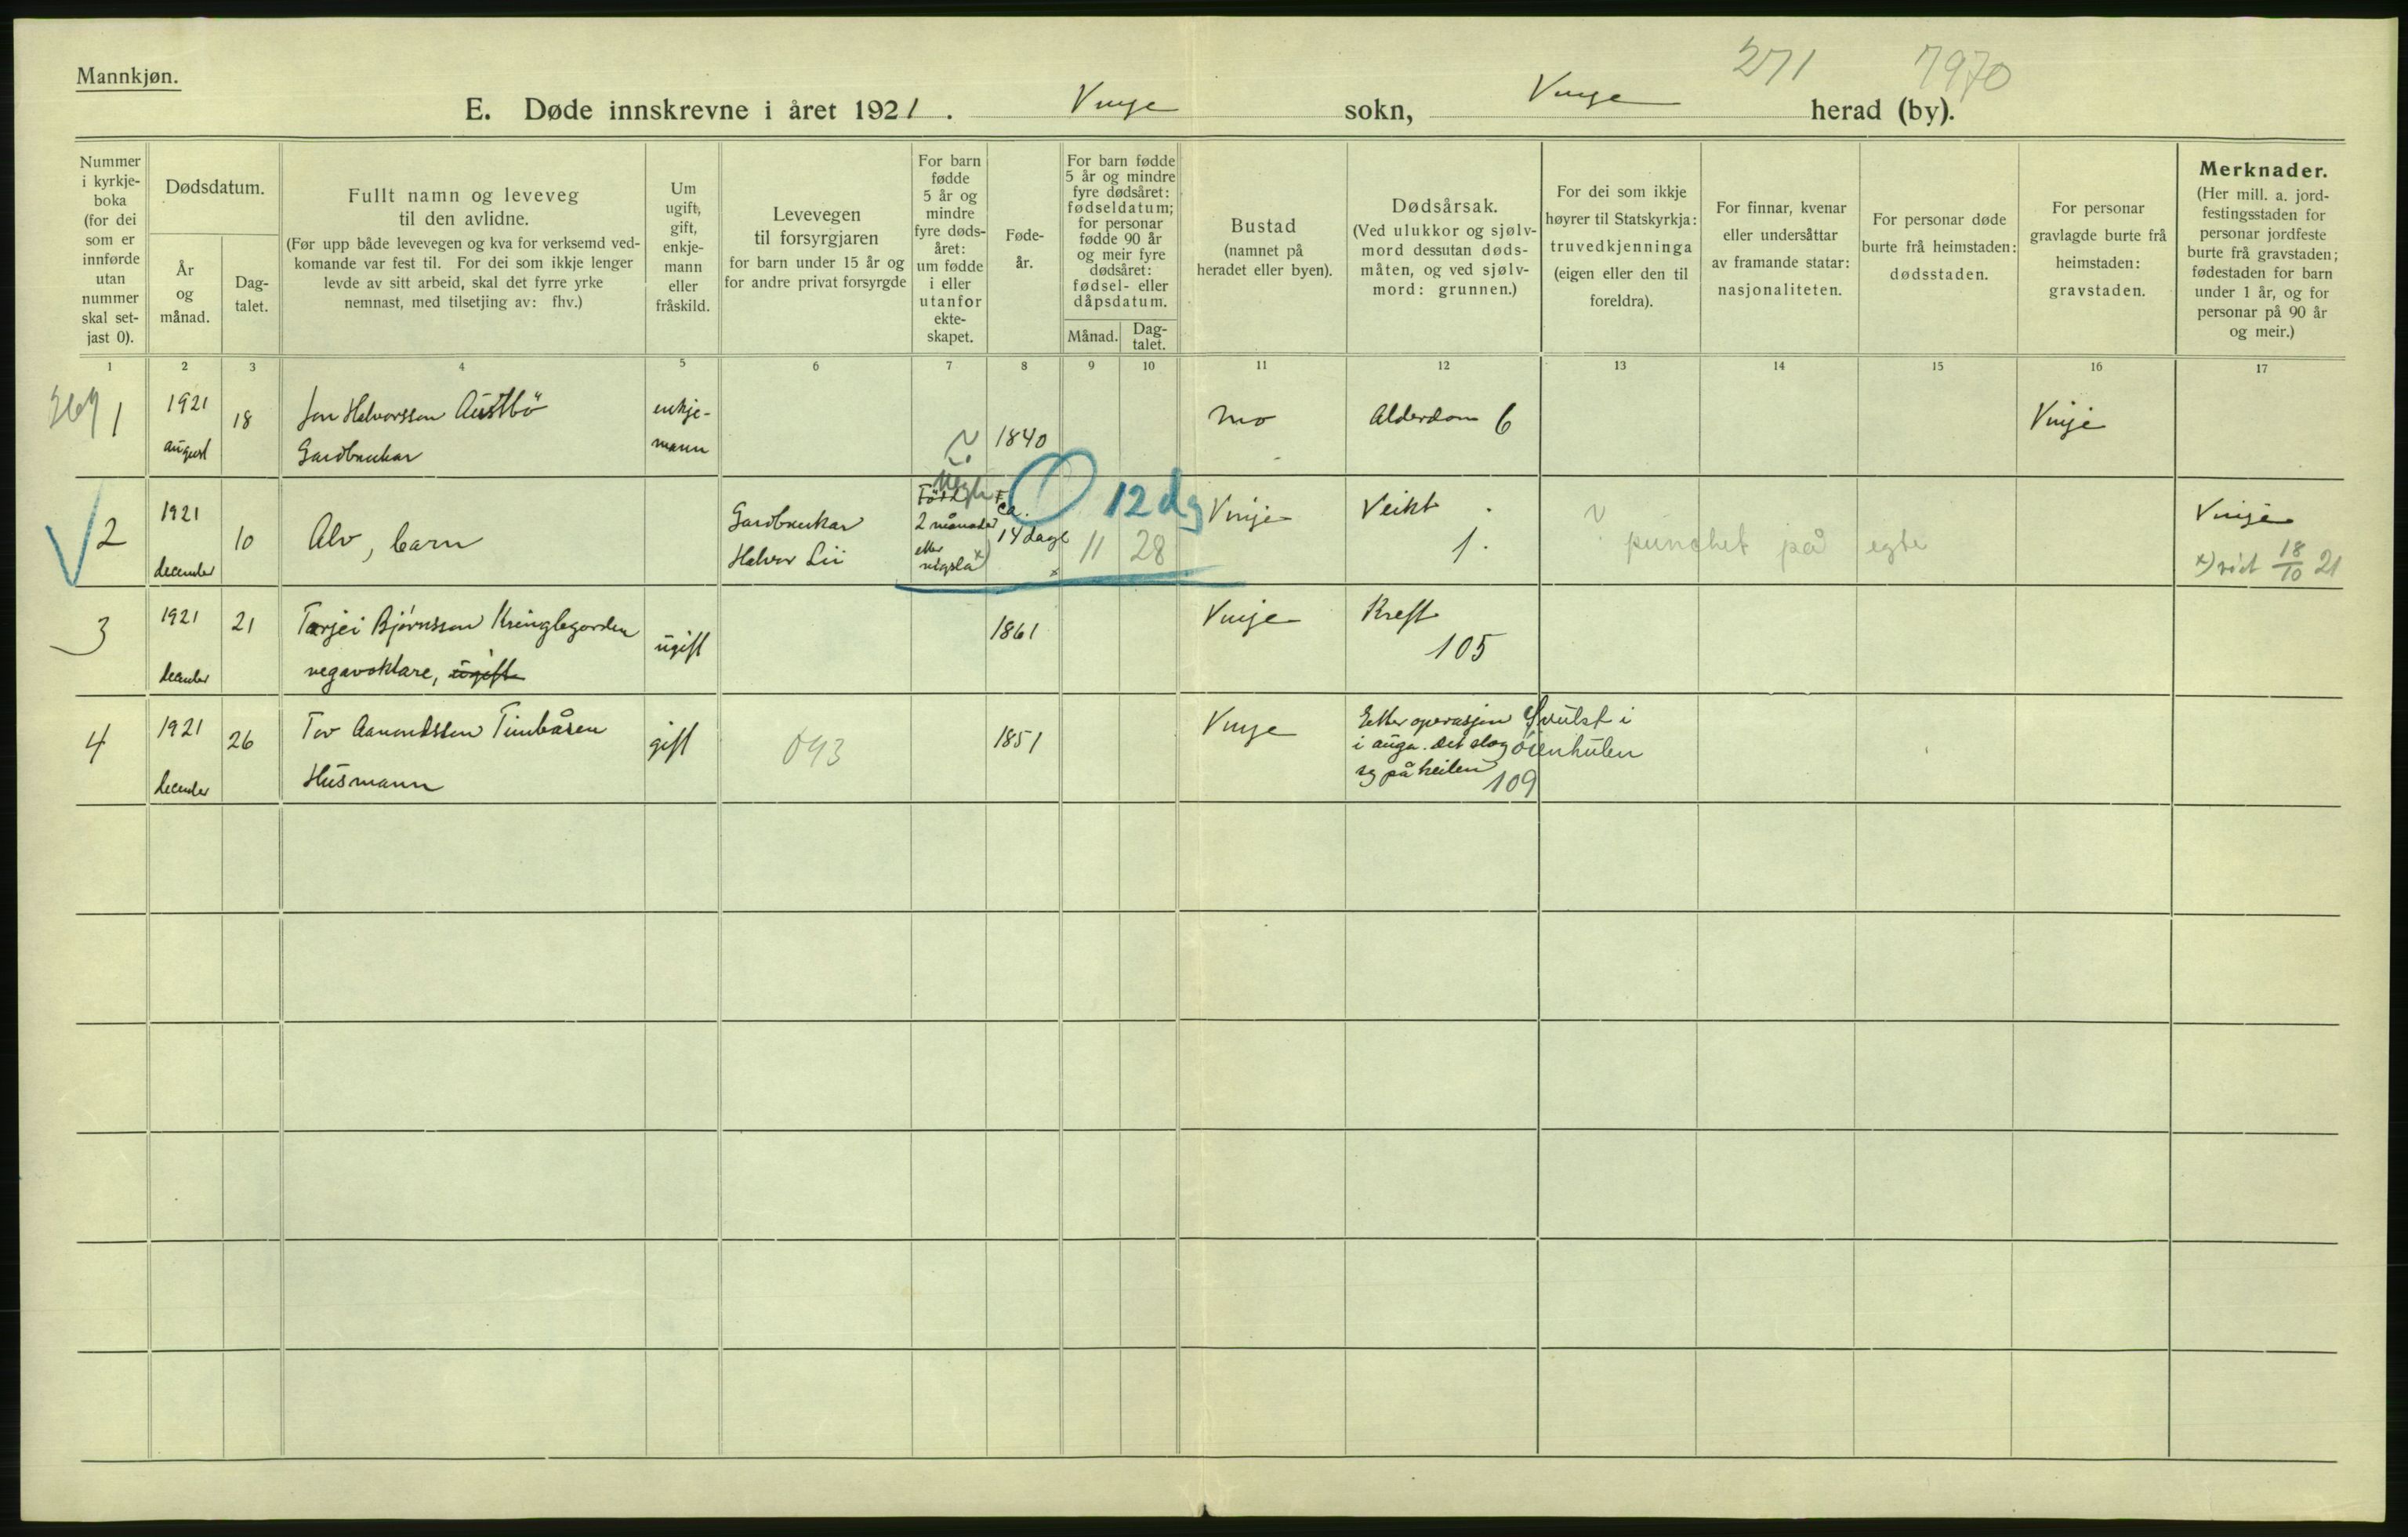 Mannkjøn.
271 7970
E. Døde innskrevne i året 1921. Vinje sokn, Vinje herad (by).
Nummer
i kyrkje-
boka
(for dei
som er
innførde
utan
nummer
skal set-
jast 0).
Dødsdatum.
År
og
månad.
Dag-
talet.
Fullt namn og leveveg
til den avlidne.
(Før upp både levevegen og kva for verksemd ved-
komande var fest til. For dei som ikkje lenger
levde av sitt arbeid, skal det fyrre yrke
nemnast, med tilsetjing av: fhv.)
Um
ugift,
gift,
enkje-
mann
eller
fråskild.
Levevegen
til forsyrgjaren
for barn under 15 år og
for andre privat forsyrgde
For barn
fødde
5 år og
mindre
fyre døds-
året:
um fødde
i eller
utanfor
ekte-
skapet.
Føde-
år.
For barn fødde
5 år og mindre
fyre dødsåret:
fødseldatum;
for personar
fødde 90 år
og meir fyre
dødsåret:
fødsel- eller
dåpsdatum.
Månad.
Dag-
talet.
Bustad
(namnet på
heradet eller byen).
Dødsårsak.
(Ved ulukkor og sjølv-
mord dessutan døds-
måten, og ved sjølv-
mord: grunnen.)
For dei som ikkje
høyrer til Statskyrkja:
truvedkjenninga
(eigen eller den til
foreldra).
For finnar, kvenar
eller undersåttar
av framande statar:
nasjonaliteten.
For personar døde
burte frå heimstaden:
dødsstaden.
For personar
gravlagde burte frå
heimstaden:
gravstaden.
Merknader.
(Her mill. a. jord-
festingsstaden for
personar jordfeste
burte frå gravstaden;
fødestaden for barn
under 1 år, og for
personar på 90 år
og meir.)
1 2 3 4 5 6 7 8 9 10 11 12 13 14 15 16 17
1
1921
august
18
Jon Halvorsson Austbö
Gardbrukar
enkje-
mann
1840
Mo
Alderdom 6
Vinje
2
1921
december
10
Alv, barn
Gardbrukar
Halvor Lii
Född
2 månader
etter
vigsla x)
ca.
14 dage
0 12 dg
11 28
Vinje
Veikt
1.
punchet på egte
Vinje
x) viet 18/10 21
3
1921
december
21
Tarjei Bjørnsson Kringlegarden
vegavaktare, ugift
ugift
1861
Vinje
Kreft
105
4
1921
december
26
Tov Aamondsson Timbåsen
Husmann
gift
043
1851
Vinje
Etter operasjon Svulst i
i auga. Det slog öienhulen
seg på heilen
109